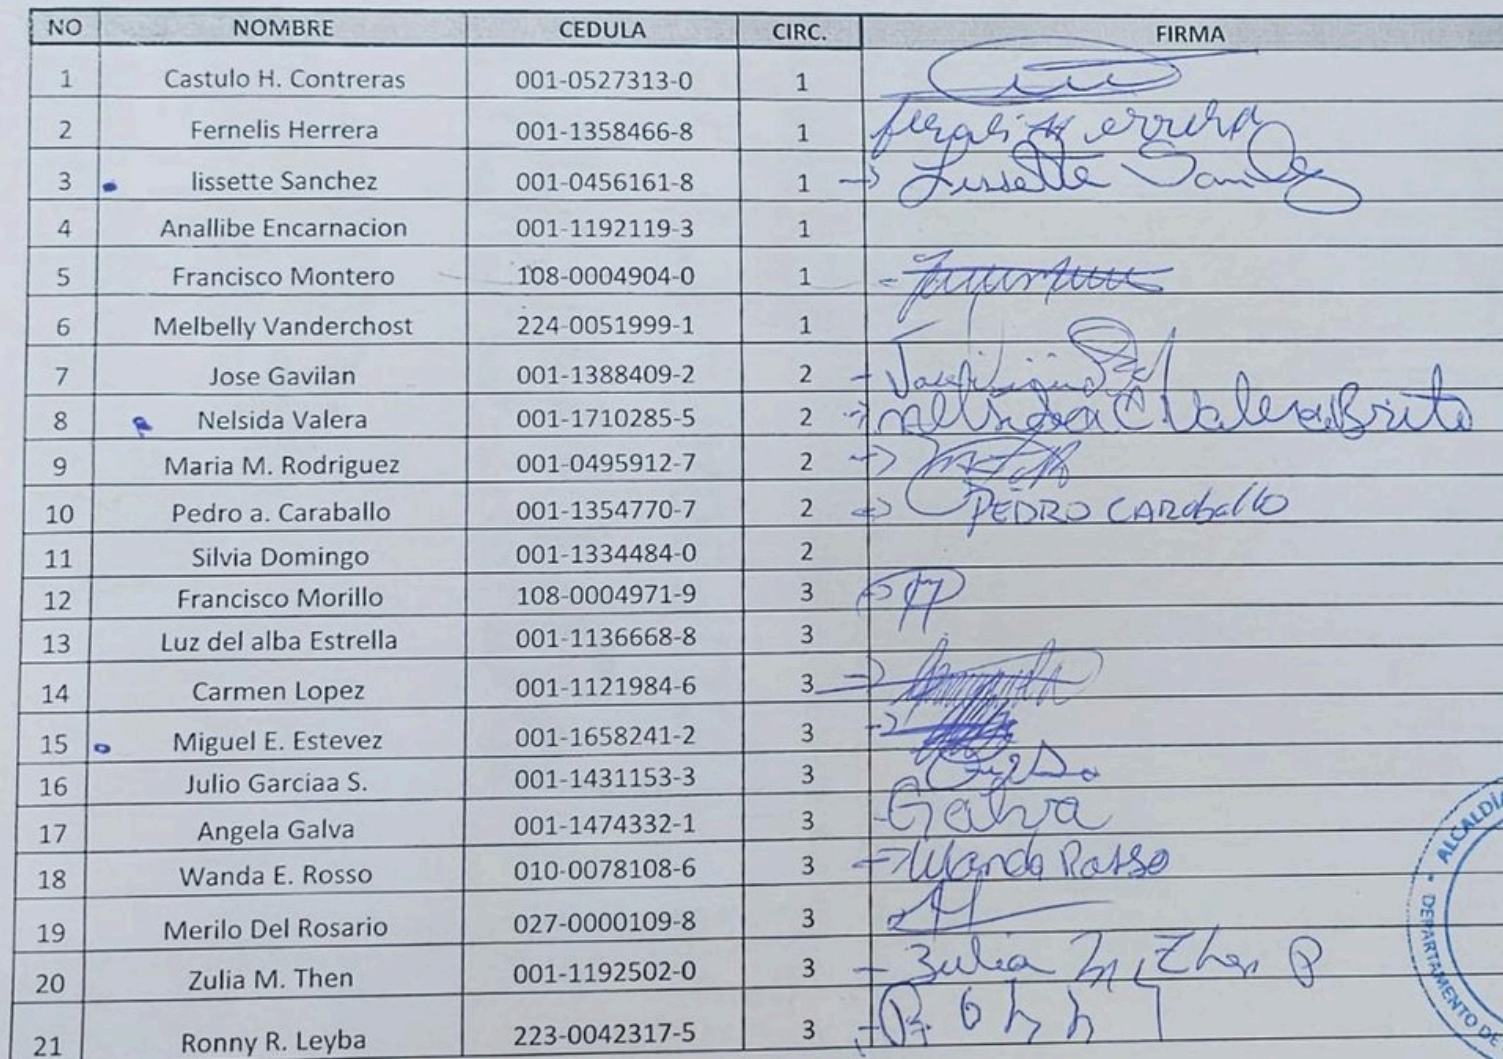 NO NOMBRE CEDULA CIRC. FIRMA
1 Castulo H. Contreras 001-0527313-0 1
2 Fernelis Herrera 001-1358466-8 1
3 lissette Sanchez 001-0456161-8 1 Lissette
4 Anallibe Encarnacion 001-1192119-3 1
5 Francisco Montero 108-0004904-0 1
6 Melbelly Vanderchost 224-0051999-1 1
7 Jose Gavilan 001-1388409-2 2
8 Nelsida Valera 001-1710285-5 2 C Valera Brito
9 Maria M. Rodriguez 001-0495912-7 2
10 Pedro a. Caraballo 001-1354770-7 2 PEDRO CARaballo
11 Silvia Domingo 001-1334484-0 2
12 Francisco Morillo 108-0004971-9 3
13 Luz del alba Estrella 001-1136668-8 3
14 Carmen Lopez 001-1121984-6 3
15 Miguel E. Estevez 001-1658241-2 3
16 Julio Garciaa S. 001-1431153-3 3
17 Angela Galva 001-1474332-1 3 Galva
18 Wanda E. Rosso 010-0078108-6 3 Wanda Rosso
19 Merilo Del Rosario 027-0000109-8 3
20 Zulia M. Then 001-1192502-0 3 Zulia M. Then P
21 Ronny R. Leyba 223-0042317-5 3
ALCALDIA
DEPARTAMENTO DE